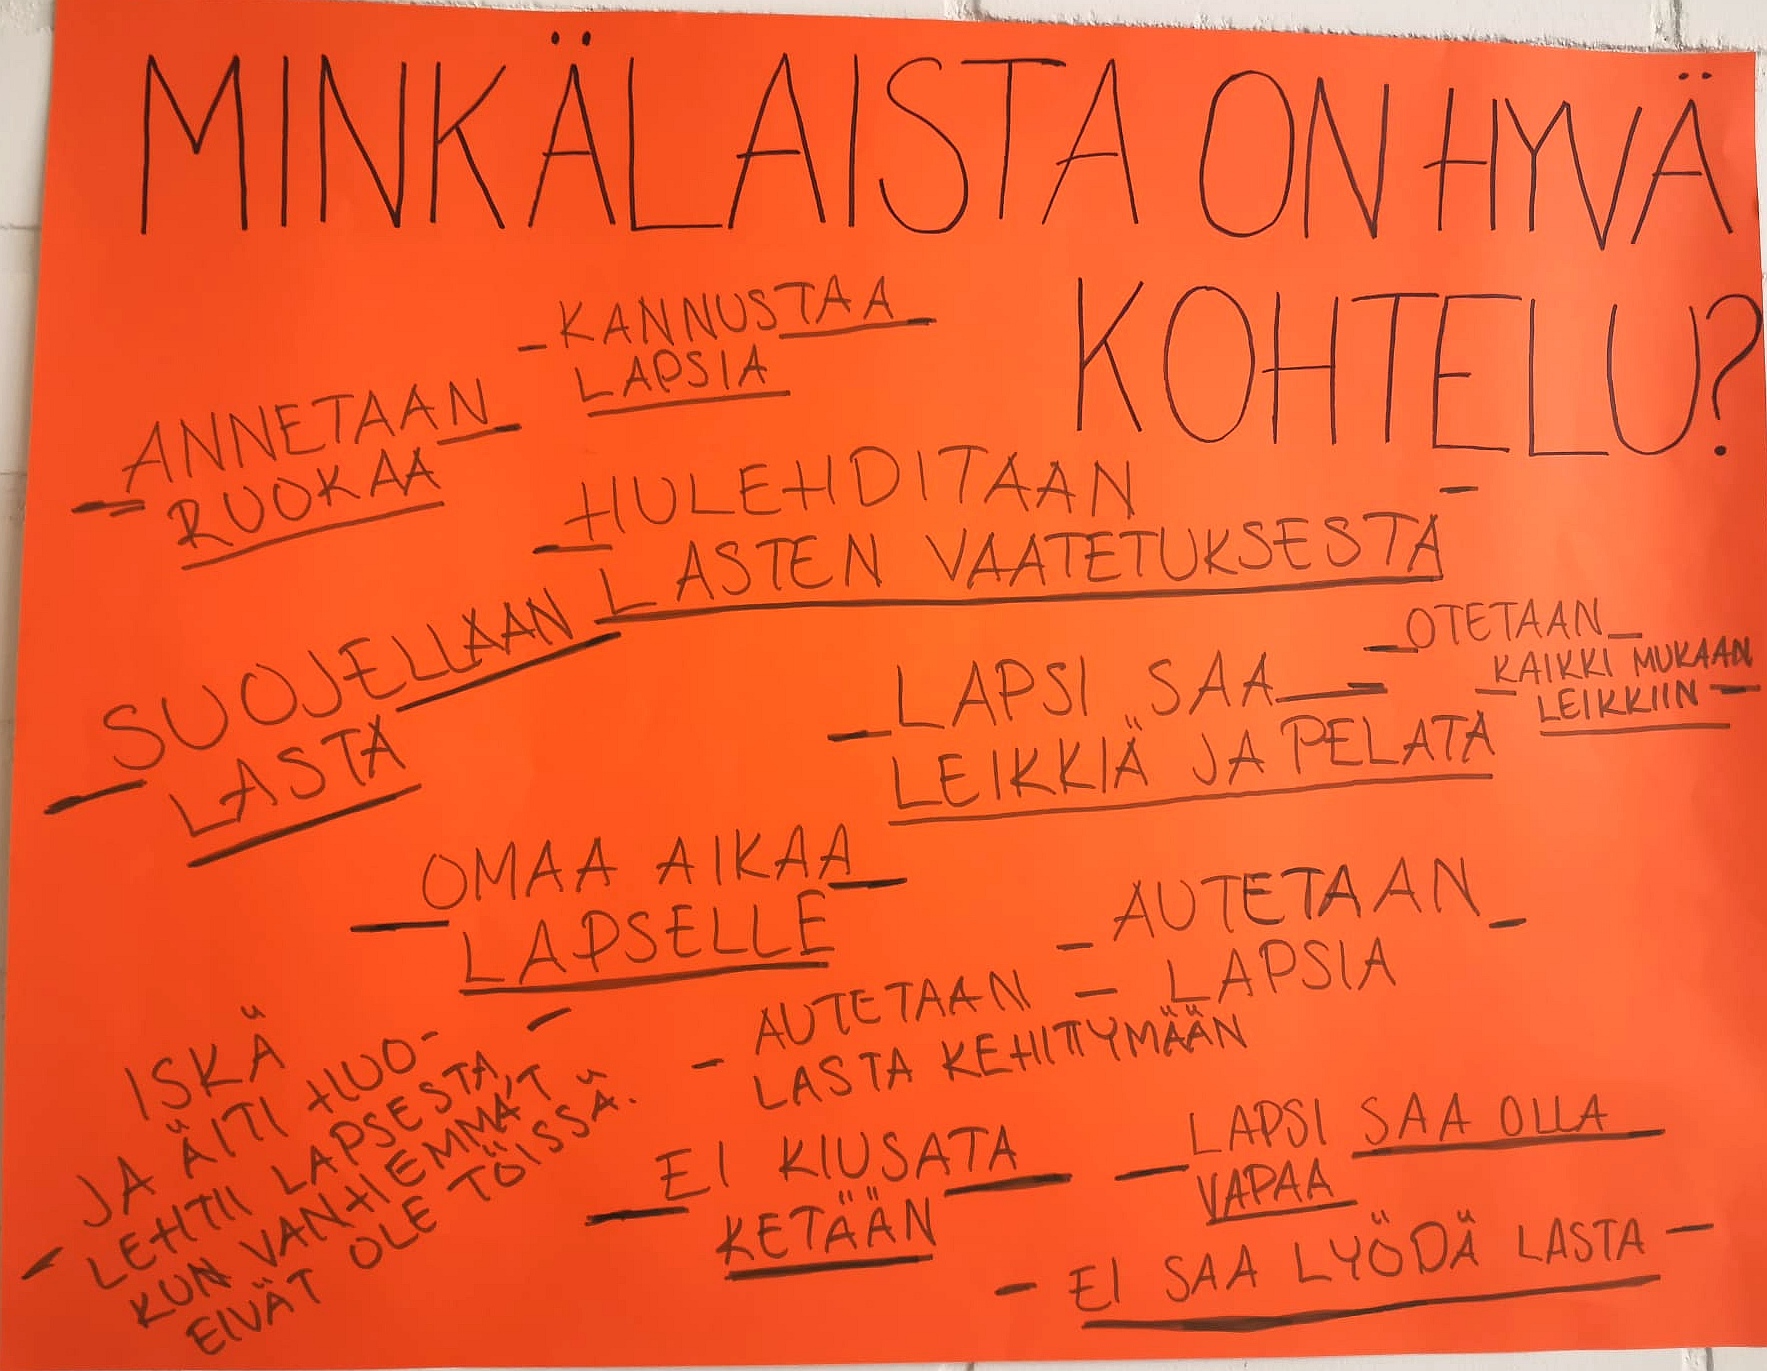 MINKÄLAISTA ON HYVÄ
KOHTELU?
- KANNUSTAA -
LAPSIA
- ANNETAAN -
RUOKAA
- HULEHDITAAN -
LASTEN VAATETUKSESTA
- SUOJELLAAN
LASTA
- OTETAAN -
- KAIKKI MUKAAN -
LEIKKIIN
- LAPSI SAA -
LEIKKIÄ JA PELATA
- OMAA AIKAA -
LAPSELLE
- AUTETAAN -
LAPSIA
- AUTETAAN -
LASTA KEHITTYMÄÄN
ISKÄ
JA ÄITI HUO-
- LEHTII LAPSESTA, -
KUN VANHEMMAT
EIVÄT OLE TÖISSÄ.
- EI KIUSATA -
KETÄÄN
- LAPSI SAA OLLA
VAPAA
- EI SAA LYÖDÄ LASTA -